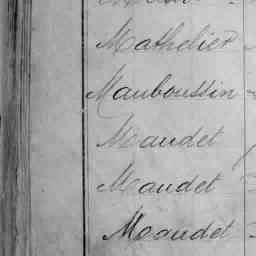 Mathelier
Mauboussin
Maudet
Maudet
Maudet